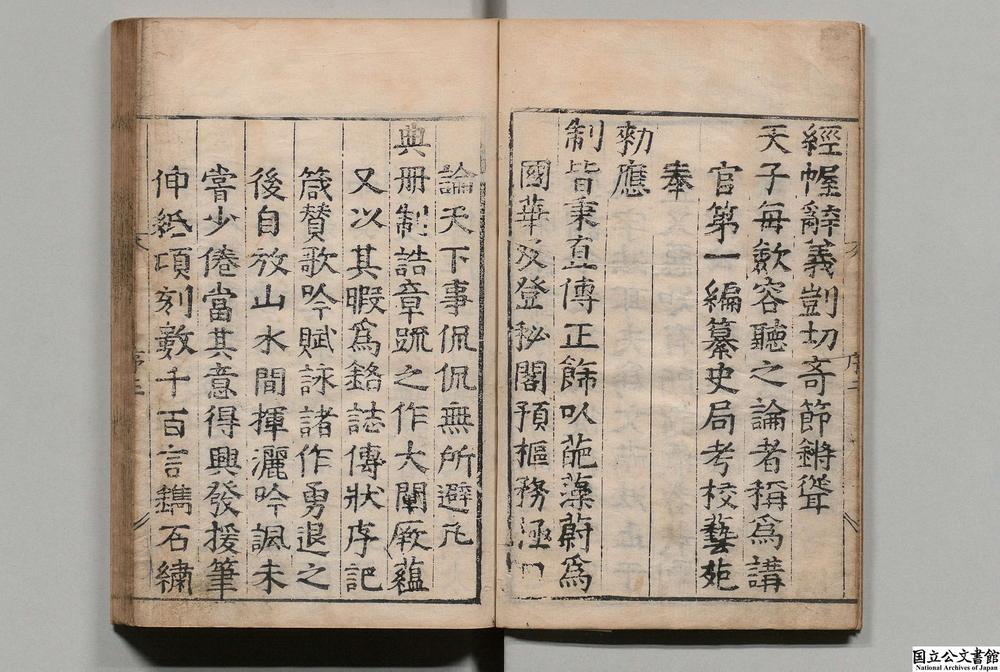 經幄辭義剴切奇節鏘聳
天子每歛容聽之論者稱為講
官第一編纂史局考校藝苑
奉
勑應
制皆秉直傳正飾以葩藻蔚為
國華及登秘閣預樞務極
論天下事侃侃無所避凡
典册制誥章疏之作大闡厥蘊
又以其暇為銘誌傳狀序記
箴賛歌吟賦詠諸作勇退之
後自放山水間揮灑吟諷未
嘗少倦當其意得興發援筆
伸紙項刻數千百言鐫石繡
序二
国立公文書館
National Archives of Japan